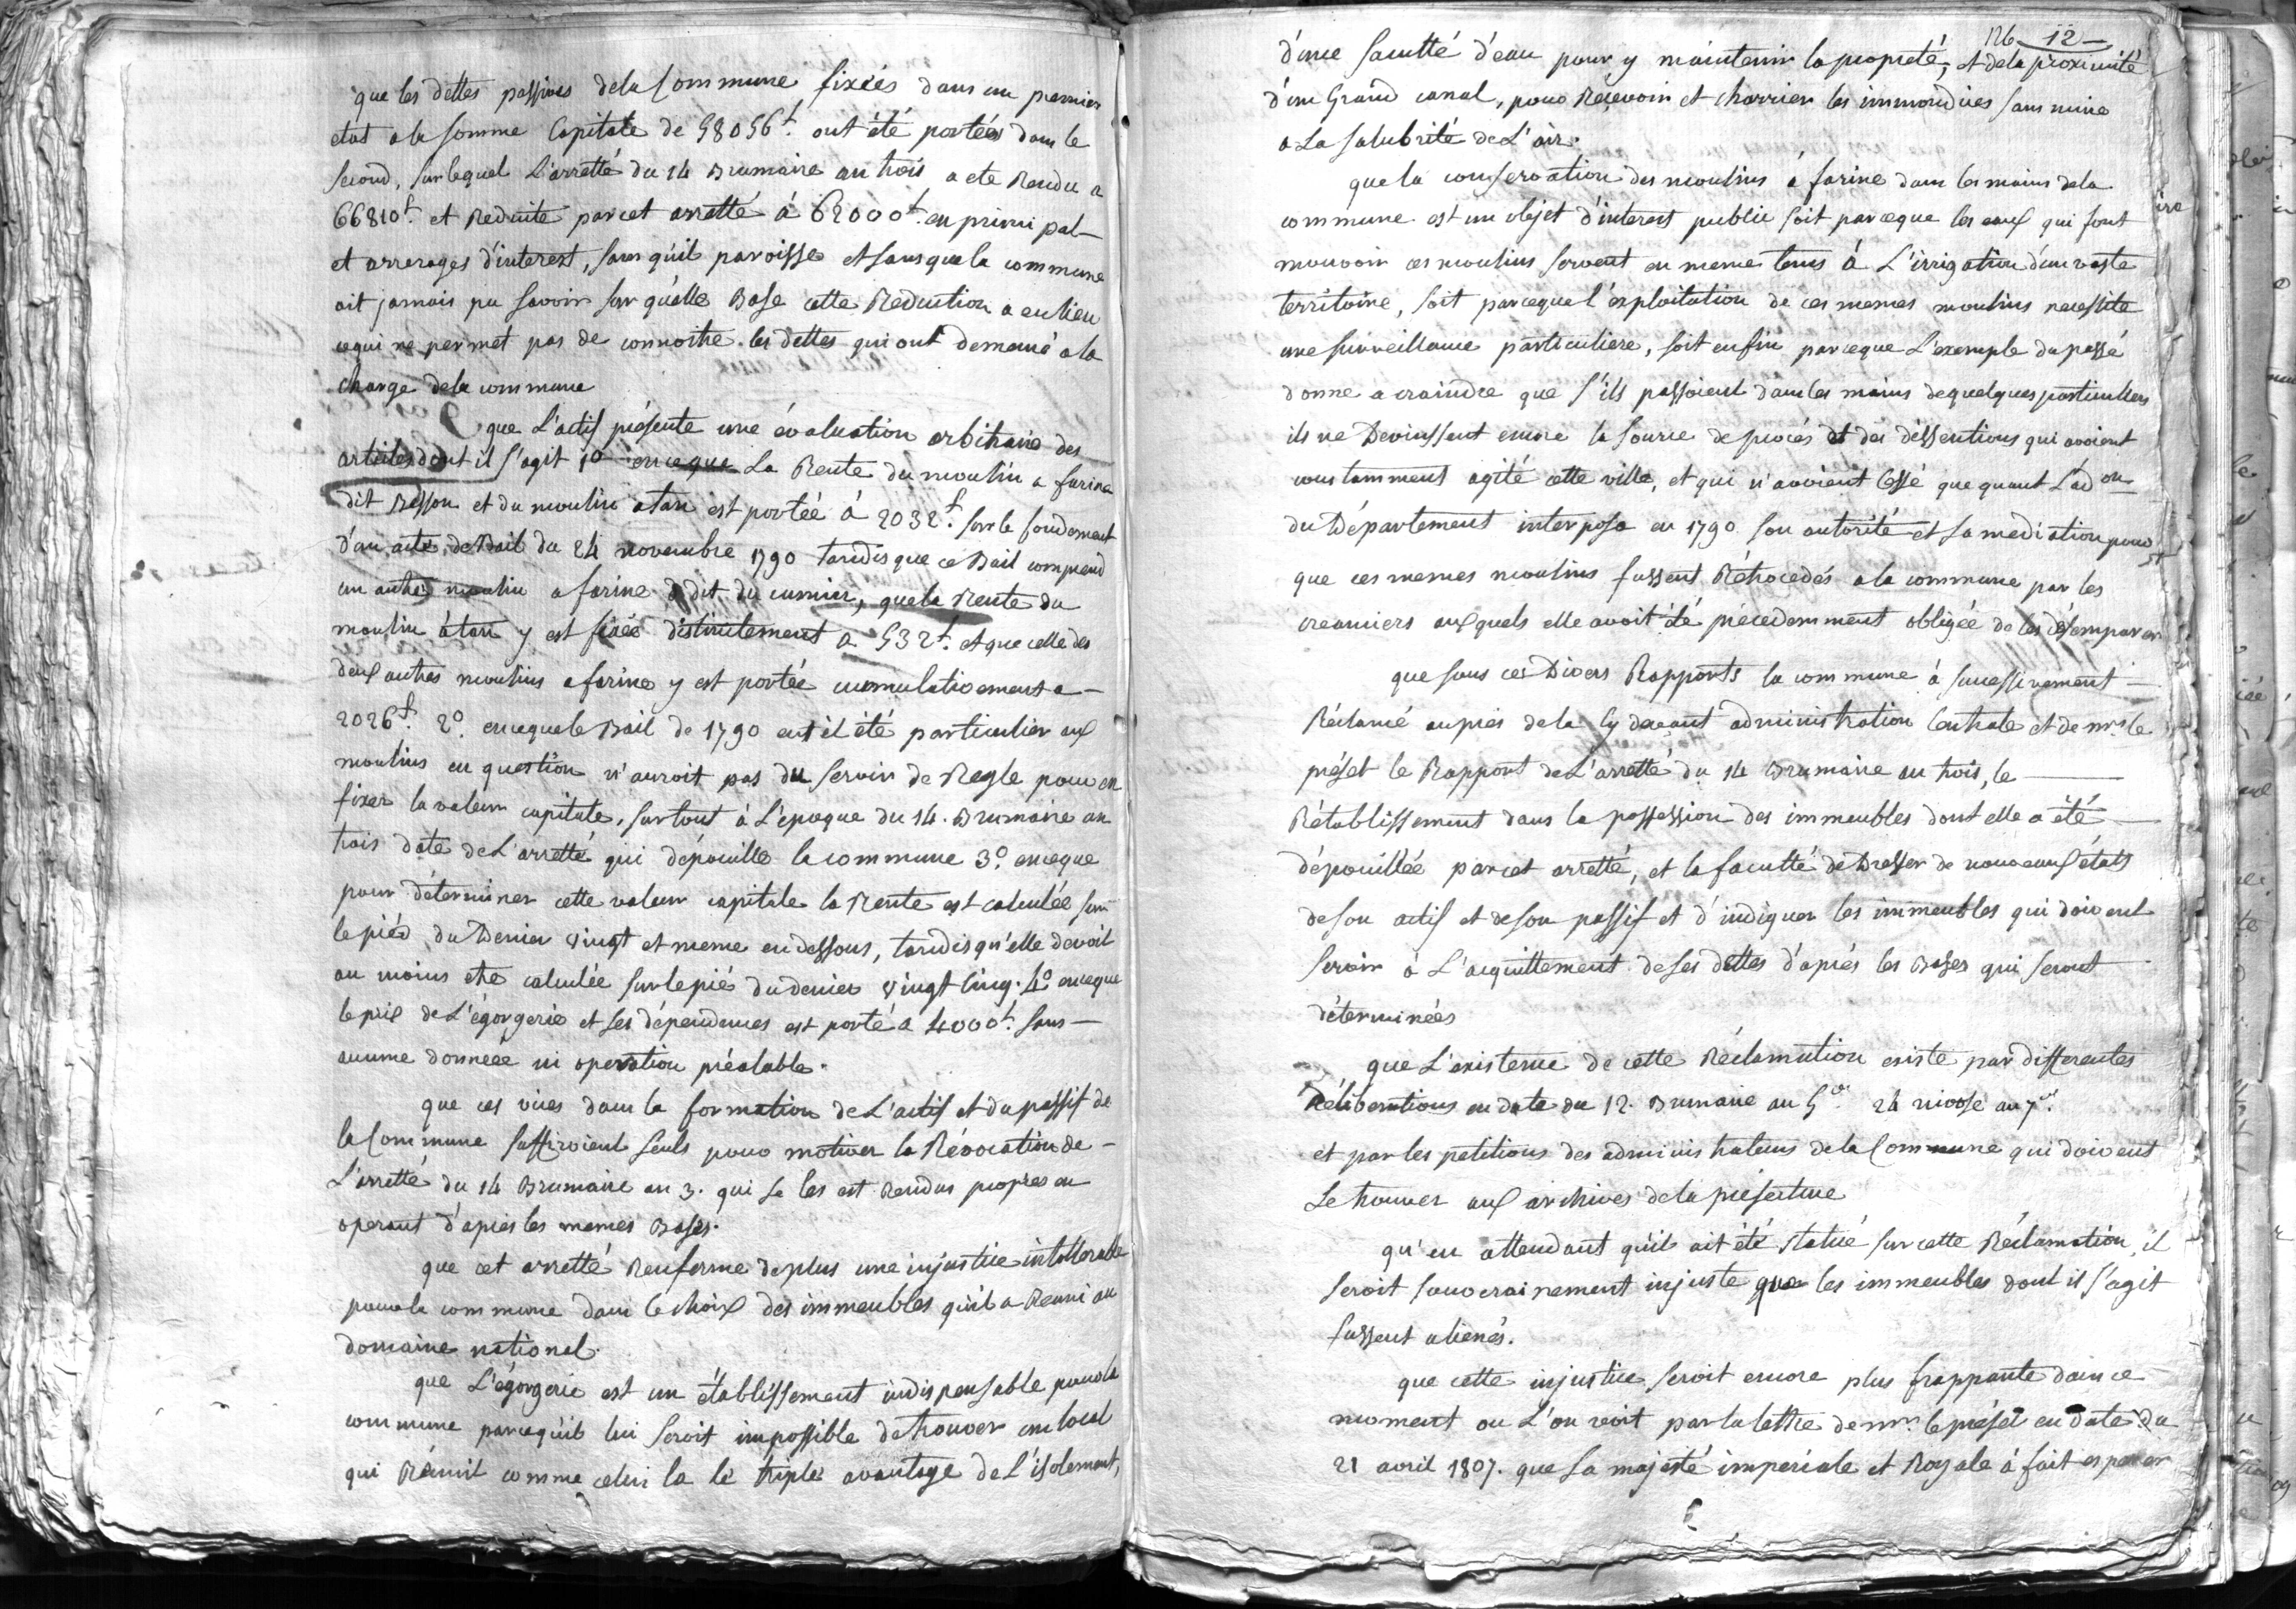 que les dettes passives dela Commune fixées dans un premier
etat a la somme Capitale de 58056ᵗ. ont été portées dans le
second, sur lequel L'arretté du 14 Brumaire an trois a ete Rendu a
66810ᵗ. et Reduite par cet arretté à 62000ᵗ. en principal –
et arrerages d'interest, sans qu'il paroisse et sans que la commune
ait jamais pu savoir sur quelle Base cette Reduction a eu lieu
ce qui ne permet pas de connoitre les dettes qui ont demeuré a la
charge dela commune
que L'actif présente une évaluation arbitraire des
articles dont il s'agit 1º en ce que La Rente du moulin a farine
dit Besson et du moulin atan est portée à 2032ᵗ. sur le fondement
d'un acte de Bail du 24 novembre 1790 tandis que ce Bail comprend
un autre moulin a farine dit du cumier, que la Rente du
moulin àtan y est fixée distinctement a 532ᵗ. et que celle des
deux autres moulins a farine y est portée cumulativement a –
2026ᵗ. 2º. en ce que le Bail de 1790 eut il été particulier aux
moulins en question n'auroit pas du servir de Regle pour en
fixer la valeur capitale, surtout à L'epoque du 14. Brumaire an
trois date de L'arretté qui dépouille la commune 3º. en ce que
pour déterminer cette valeur capitale la Rente est calculée sur
le piéd du Denier vingt et meme en dessous, tandis qu'elle devoit
au moins etre calculée sur le pié du denier vingt cinq. 4º. en ce que
le prix de L'égorgerie et ses dépendances est porté a 4000ᵗ. sans –
aucune donnéee ni operation préalable.
que ces vices dans la formation de L'actif et du passif de
la Commune suffiroient seuls pour motiver la Révocation de –
L'arretté du 14 Brumaire an 3. qui se les est Rendus propres en
operant d'apres les memes Bases.
que cet arretté Renferme de plus une injustice intollerable
pour la commune dans le choix des immeubles qu'il a Reuni au
domaine national.
que L'égorgerie est un établissement indispensable pour la
commune parcequ'il lui seroit impossible de trouver un local
qui Réunit comme celui la le triple avantage de L'isolement,
126 12 –
d'une faculté d'eau pour y maintenir la propreté, et dela proximité
d'un Grand canal, pour Recevoir et charrier les immondices sans nuire
a La salubrité de L'air.
que la conservation des moulins à farine dans les mains dela
commune est un objet d'interest public soit parceque les eaux qui font
mouvoir ces moulins servent en meme tems à L'irrigation d'un vaste
territoire, soit parceque l'exploitation de ces memes moulins necessite
une surveillance particuliere, soit enfin parceque L'exemple du passé
donne a craindre que s'ils passoient dans les mains de quelques particuliers
ils ne Devinssent encore la source de procés et des dissentions qui avoient
constamment agité cette ville, et qui n'avoient Cessé que quant L'ad on
du Département interposa en 1790 son autorité et sa mediation pour
que ces memes moulins fussent Rétrocedés a la commune par les
creanciers auxquels elle avoit été précedemment obligée de les désemparer
que sous ces Divers Rapports la commune à successivement –
Réclamé auprès de la Cy devant administration Centrale et de mʳ. le
préfet le Rapport de L'arretté du 14 Brumaire an trois, le —
Rétablissement dans la possession des immeubles dont elle a été –
dépouillée par cet arretté, et la faculté de Dresser de nouveaux états
de son actif et de son passif et d'indiquer les immeubles qui doivent
servir à L'acquittement de ses dettes d'aprés les Bases qui seront
déterminées
que L'existence de cette Réclamation existe par differentes
Déliberations en date du 12. Brumaire an 5ᵉ. 24 nivose an 7ᵉ.
et par les petitions des administrateurs dela Commune qui doivent
se trouver aux archives dela préfecture
qu'en attendant qu'il ait été statué sur cette Réclamation, il
seroit souverainement injuste que les immeubles dont il s'agit
fussent alienés.
que cette injustice seroit encore plus frappante dans ce
moment ou L'on voit par la lettre de mʳ. le préfet en date du
21 avril 1807. que sa majesté imperiale et Royale à fait esperer